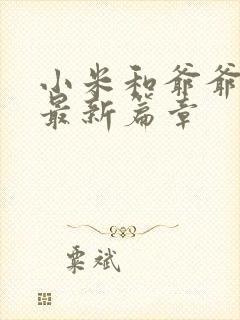 小米和爷爷
最新篇章
粟斌